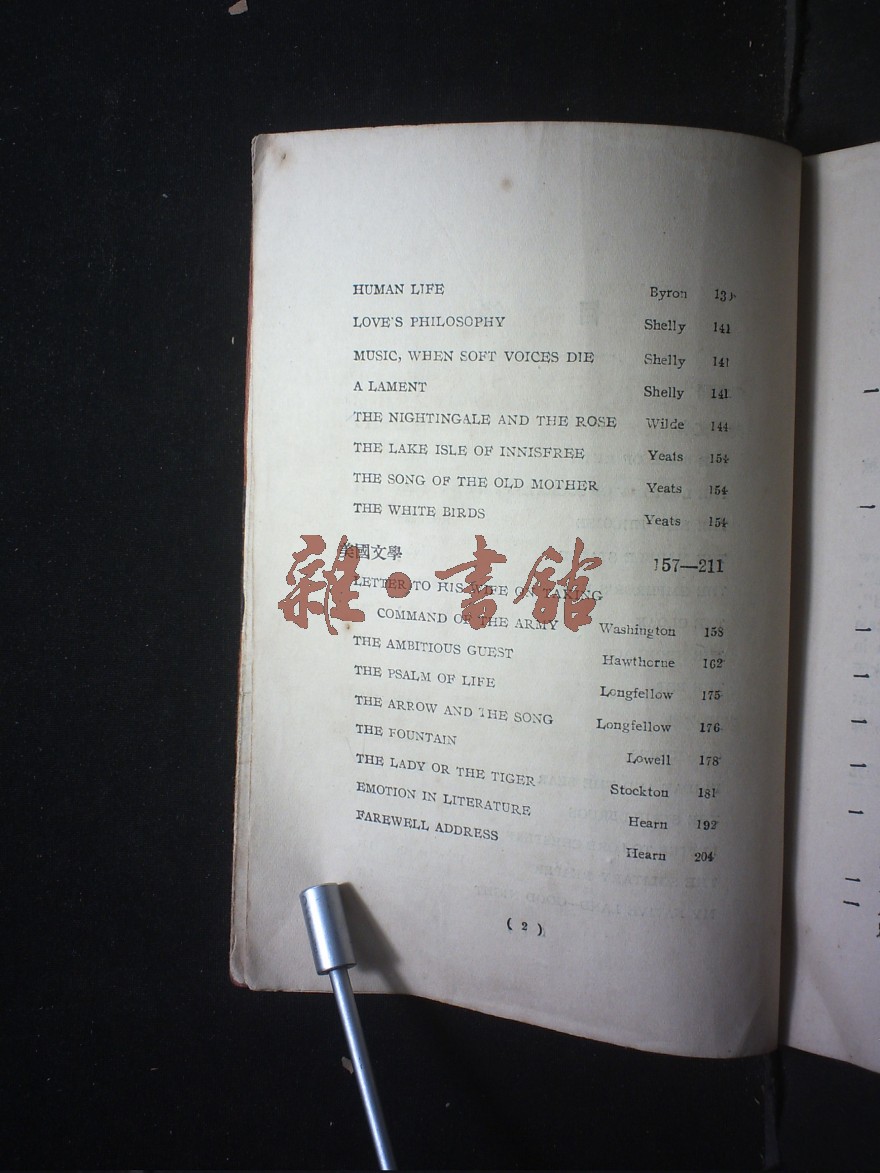 HUMAN LIFE Byron
LOVE'S PHILOSOPHY Shelly 141
MUSIC, WHEN SOFT VOICES DIE Shelly 141
A LAMENT Shelly 141
THE NIGHTINGALE AND THE ROSE Wilde 144
THE LAKE ISLE OF INNISFREE Yeats 154
THE SONG OF THE OLD MOTHER Yeats 154
THE WHITE BIRDS Yeats 154
美國文學 157—211
LETTER TO HIS WIFE ON TAKING
COMMAND OF THE ARMY Washington 158
THE AMBITIOUS GUEST Hawthorne 162
THE PSALM OF LIFE Longfellow 175
THE ARROW AND THE SONG Longfellow 176
THE FOUNTAIN Lowell 178
THE LADY OR THE TIGER Stockton 181
EMOTION IN LITERATURE Hearn 192
FAREWELL ADDRESS Hearn 204
( 2 )
雜·書館